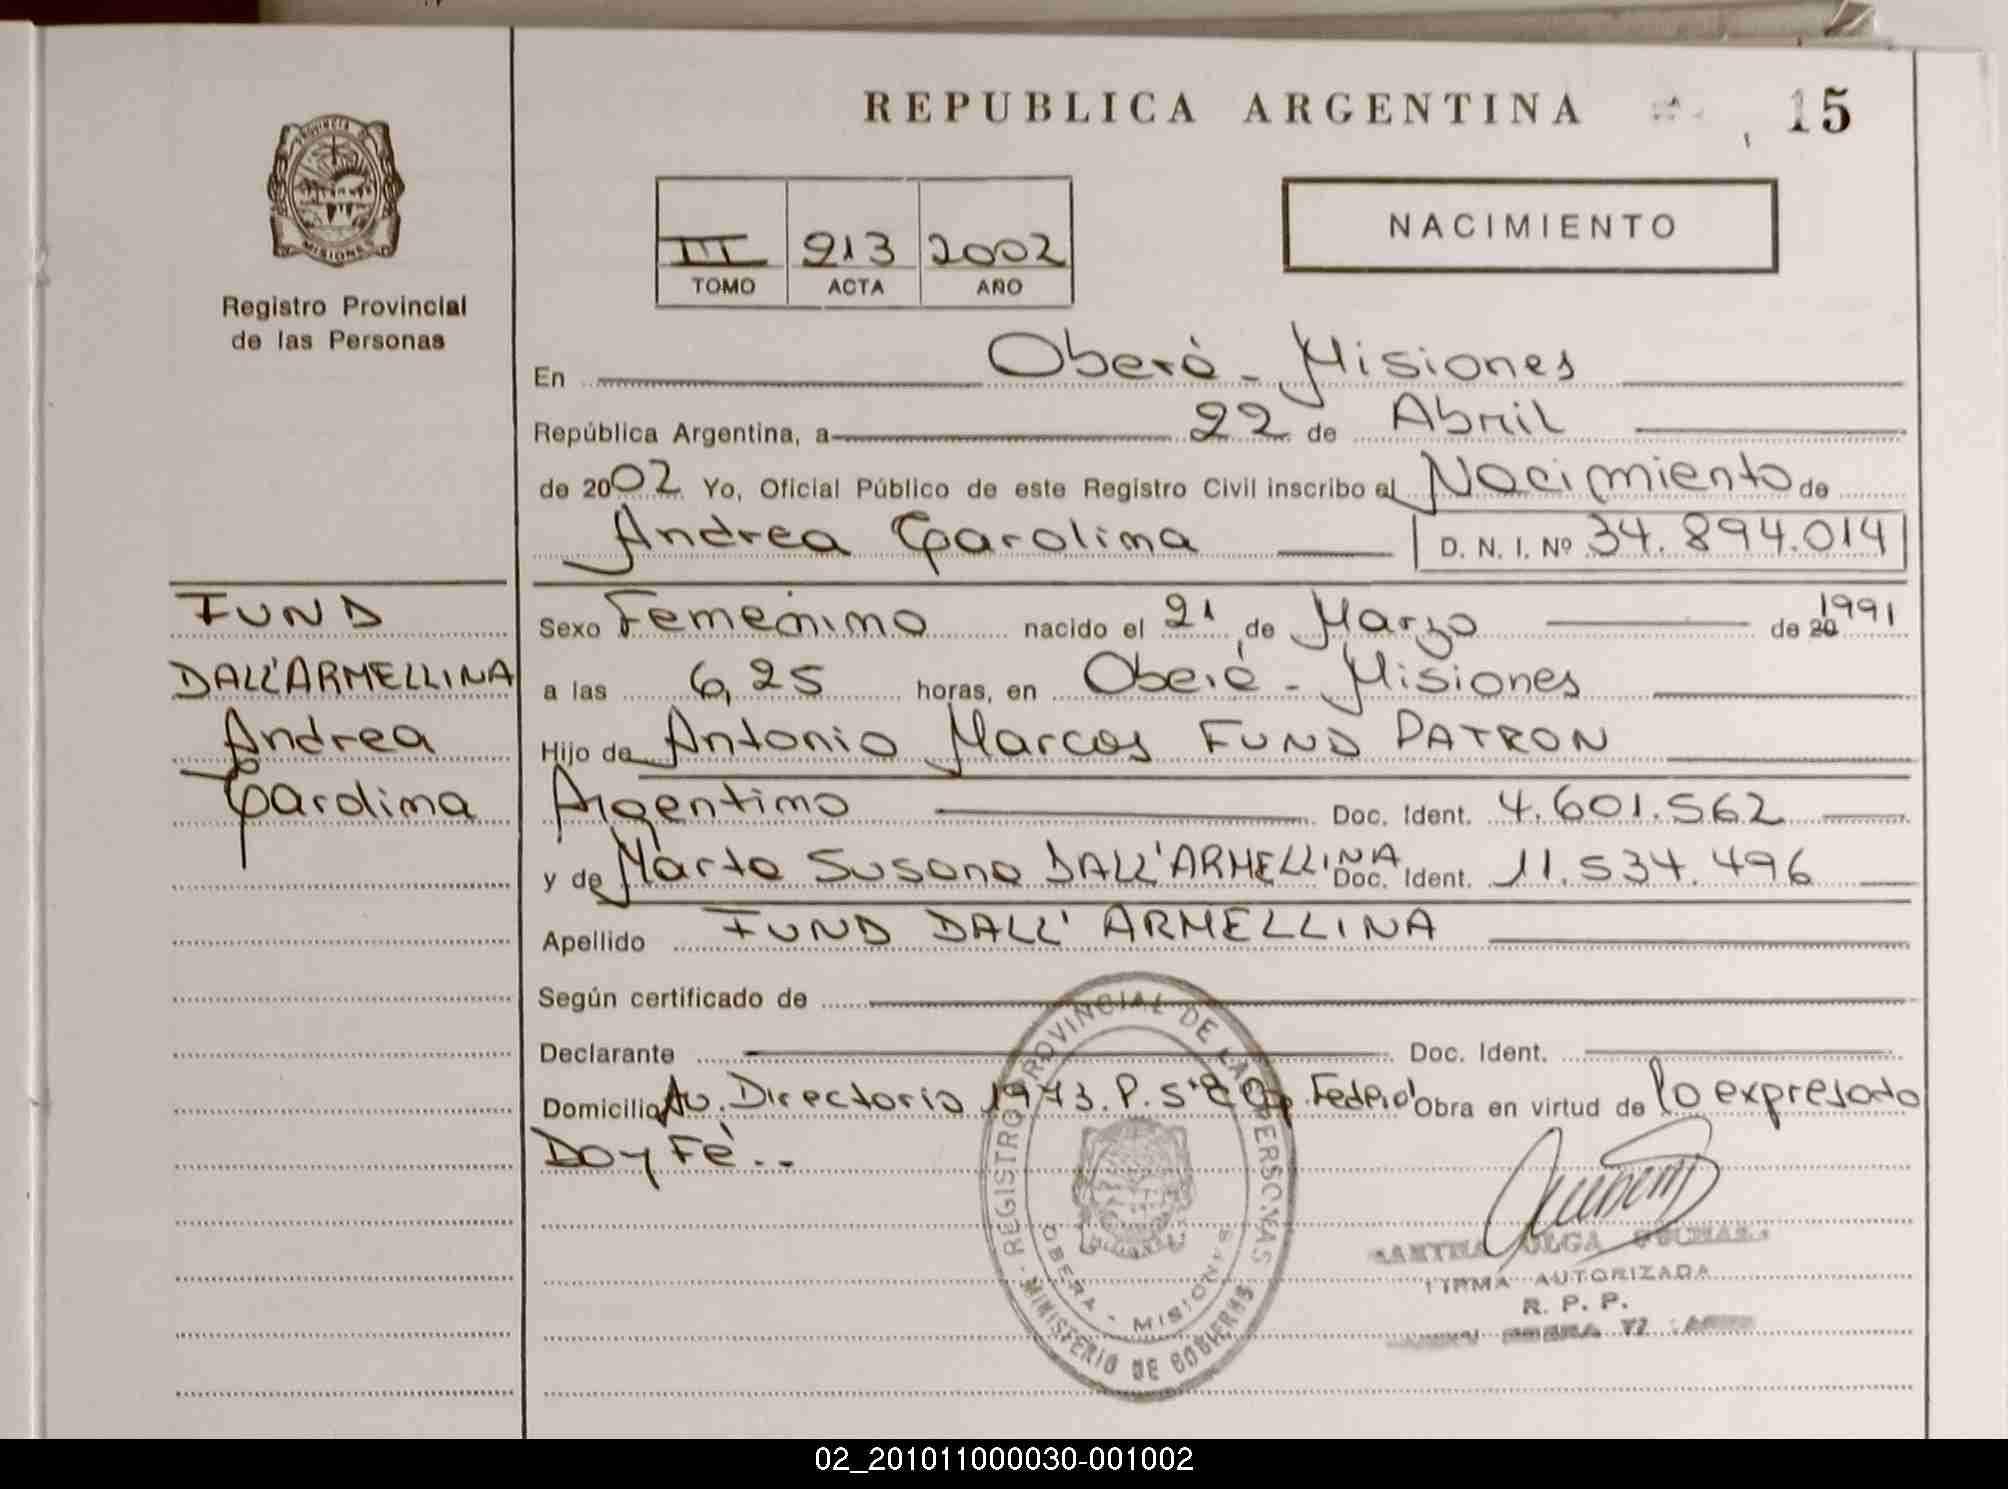 REPUBLICA ARGENTINA
15
PROVINCIA DE
MISIONES
Registro Provincial
de las Personas
III 213 2002
TOMO ACTA AÑO
NACIMIENTO
En Oberá - Misiones
República Argentina, a 22 de Abril
de 2002 Yo, Oficial Público de este Registro Civil inscribo el Nacimiento de
Andrea Carolina D. N. I. Nº 34.894.014
FUND
DALL'ARMELLINA
Andrea
Carolina
Sexo Femenino nacido el 21 de Marzo de 20 1991
a las 6,25 horas, en Oberá - Misiones
Hijo de Antonio Marcos FUND PATRON
Argentino Doc. Ident. 4.601.562
y de Marta Susana DALL'ARMELLINA Doc. Ident. 11.534.496
Apellido FUND DALL'ARMELLINA
Según certificado de
Declarante Doc. Ident.
Domicilio Av. Directorio 1973. P. 5º Cap. Federal Obra en virtud de lo expresado
Doy Fé..
REGISTRO PROVINCIAL DE LAS PERSONAS
OBERA - MISIONES
MINISTERIO DE GOBIERNO
OLGA
FIRMA AUTORIZADA
R. P. P.
02_201011000030-001002